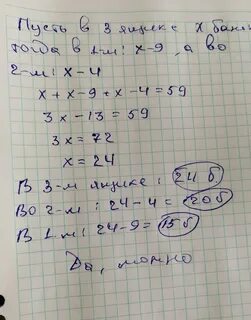 Пусть в 3 ящике х бан
тогда в 1-м: х-9, а во
2-м: х-4
х + х-9 + х-4 = 59
3х - 13 = 59
3х = 72
х = 24
В 3-м ящике: 24 б
Во 2-м: 24-4 = 20б
В 1м: 24-9 = 15б
Да, можно